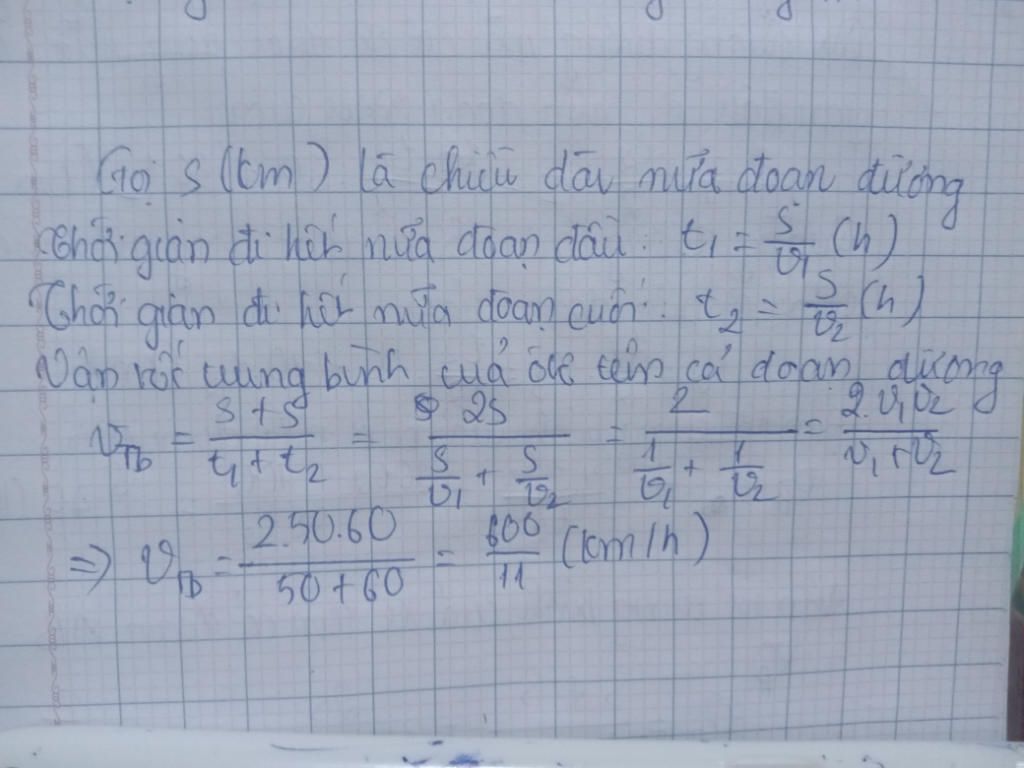 Gọi s (km) là chiều dài nửa đoạn đường
Thời gian đi hết nửa đoạn đầu: t₁ = s/v₁ (h)
Thời gian đi hết nửa đoạn cuối: t₂ = s/v₂ (h)
Vận tốc trung bình của ôtô trên cả đoạn đường
v_Tb = (s + s)/(t₁ + t₂) = 2s/(s/v₁ + s/v₂) = 2/(1/v₁ + 1/v₂) = 2.v₁v₂/(v₁+v₂)
=> v_Tb = 2.50.60/(50+60) = 600/11 (km/h)